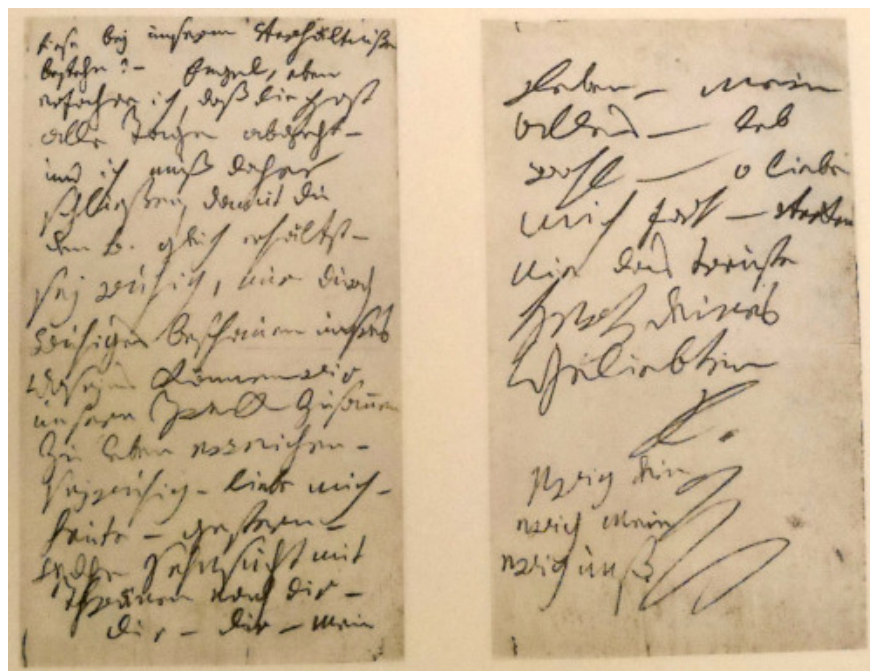 diese bej unserm Verhältniße
bestehn? – Engel, eben
erfahre ich, daß die Post
alle Tage abgeht –
und ich muß daher
schließen, damit du
den B. gleich erhältst –
sej ruhig, nur durch
ruhiges beschauen unsres
Daseins können wir
unsern Zweck zusamen
zu leben erreichen –
sej ruhig – liebe mich –
heute – gestern –
welche Sehnsucht mit
Thränen nach dir –
dir – dir – mein
Leben – mein
alles – leb
wohl – o liebe
mich fort – verken
nie das treuste
Herz deines
Geliebten
L.
ewig dein
ewig mein
ewig unß